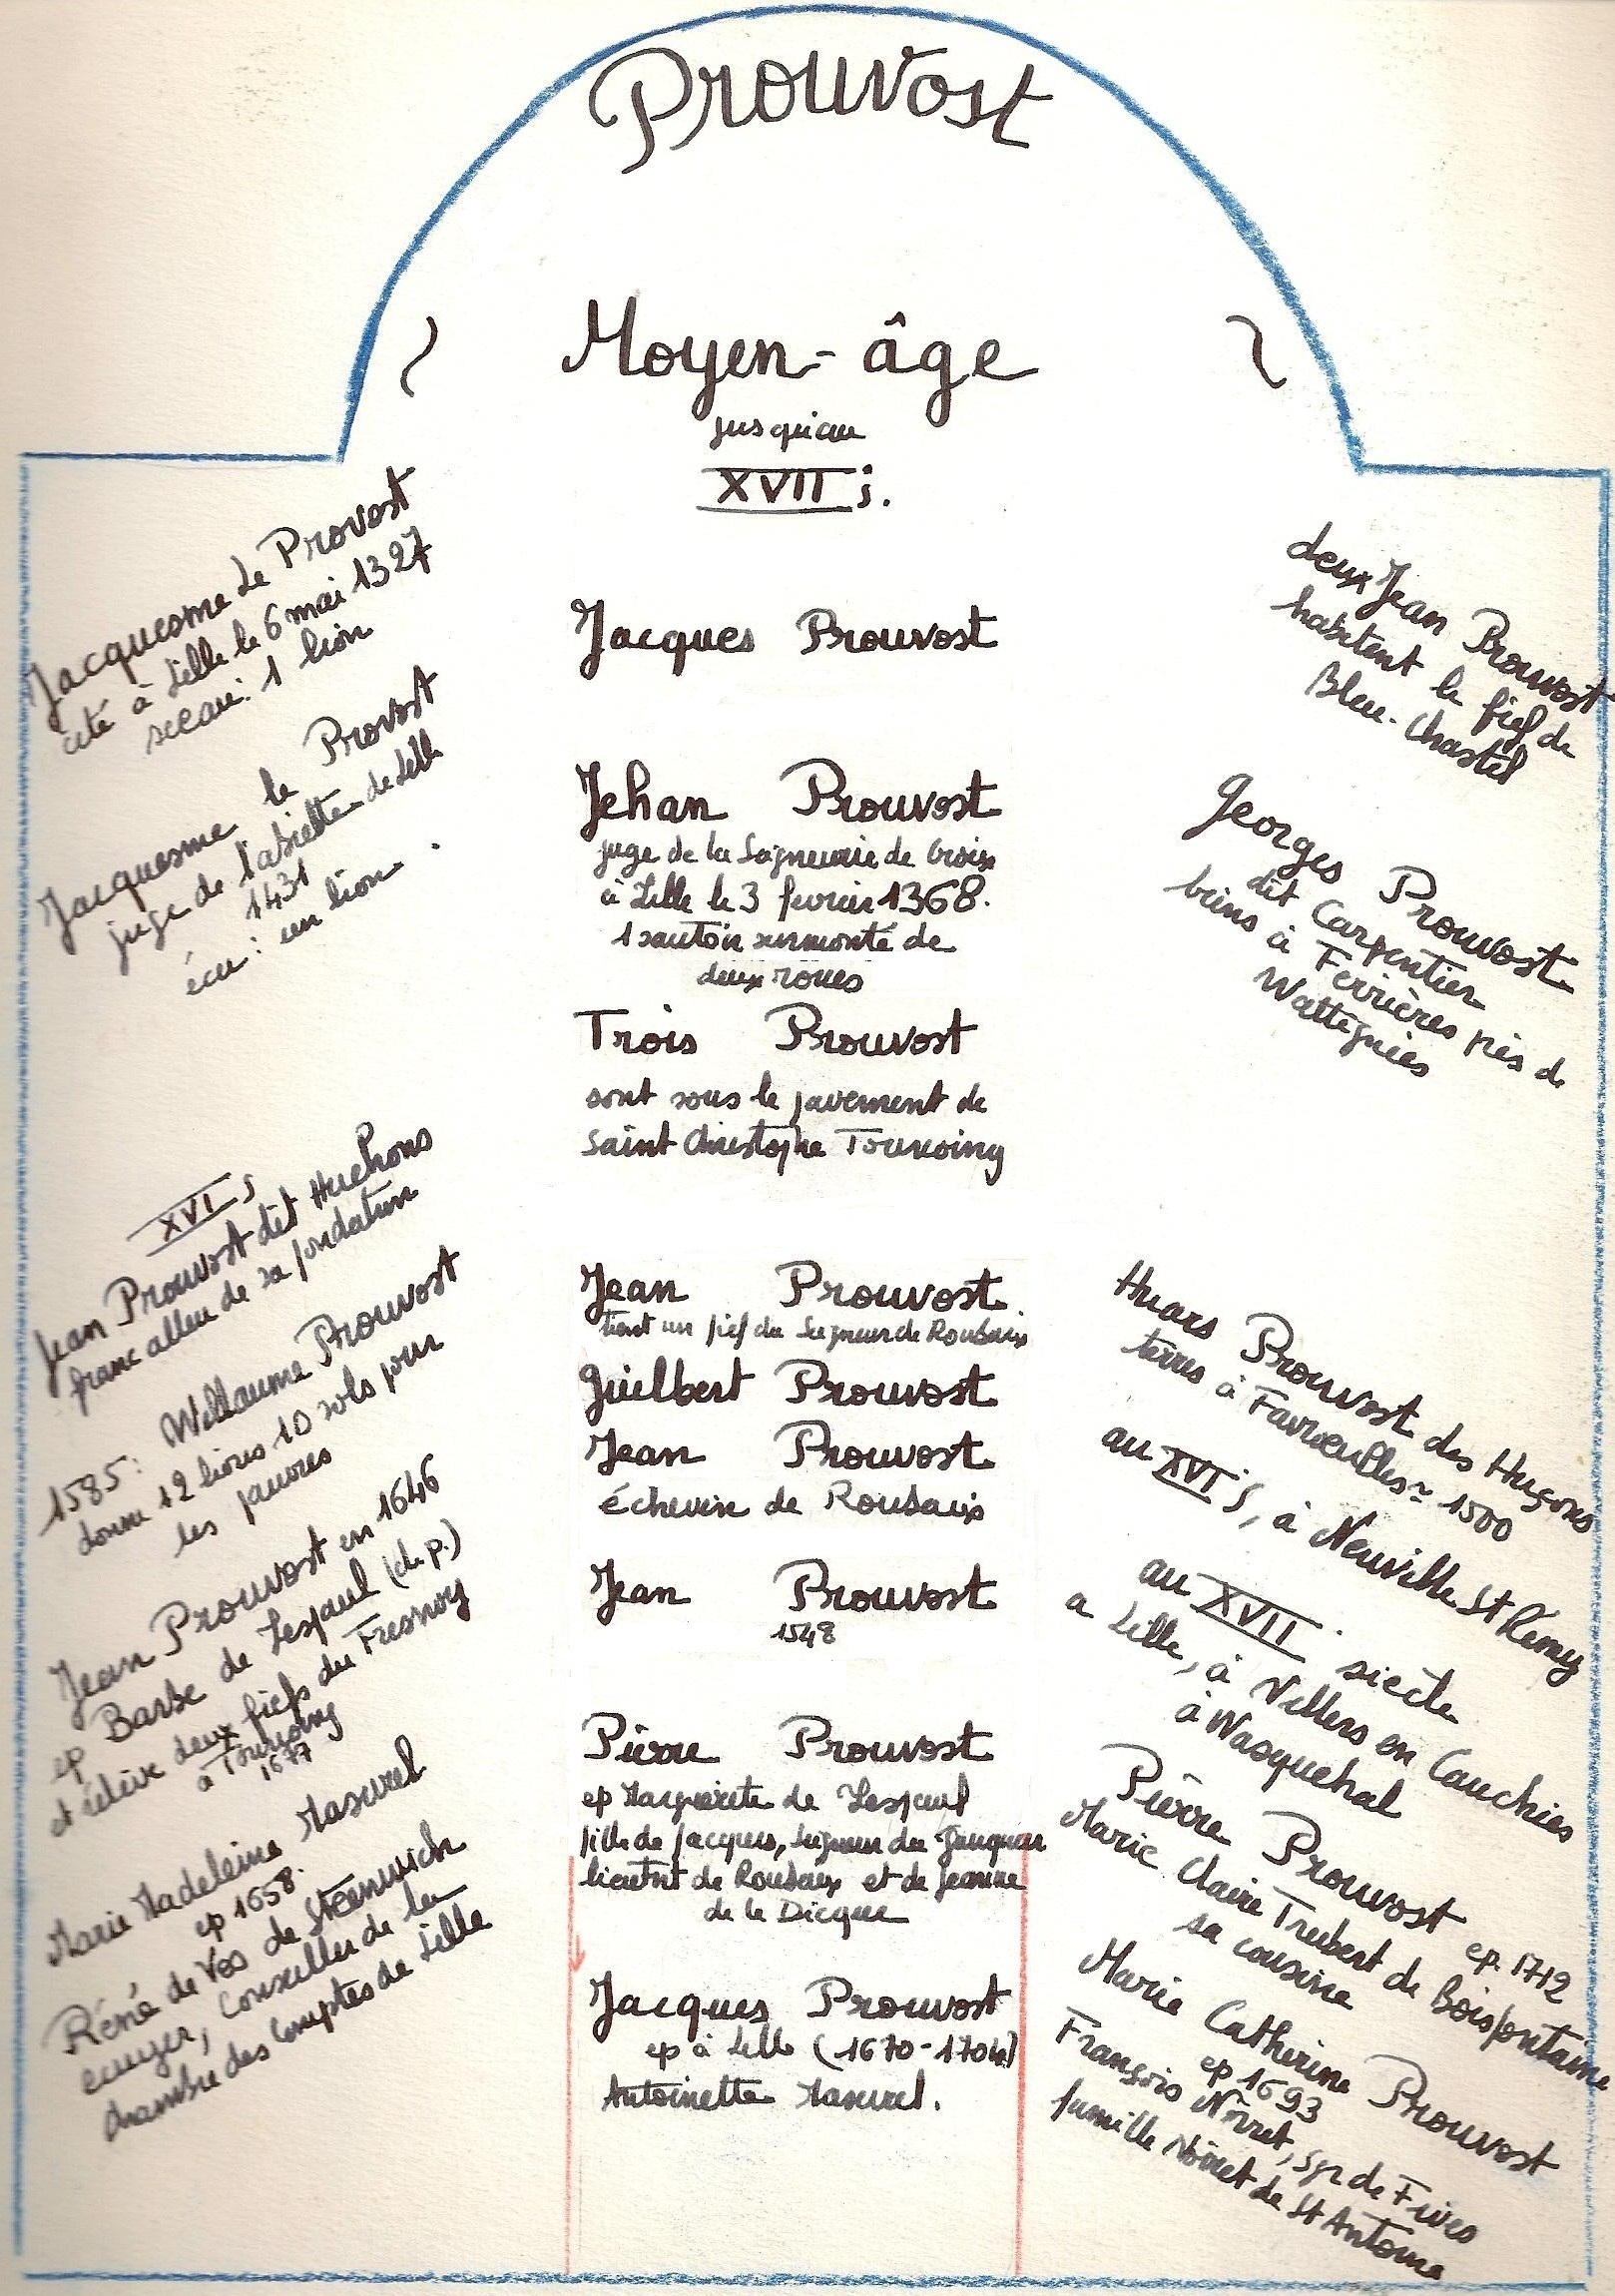 Prouvost
Moyen-âge
jusqu'au
XVII s.
Jacquesme Le Provost
cité à Lille le 6 mai 1327
sceau: 1 lion
Jacquesme le Provost
juge de l'assiette de Lille
1431
écu: un lion.
XVI s
Jean Prouvost dit Huchons
franc alleu de sa fondation
1585: Willaume Prouvost
donne 12 livres 10 sols pour
les pauvres
Jean Prouvost en 1646
ep Barbe de Lespaul (d.p.)
et relève deux fiefs du Fresnoy
à Tourcoing
1677
Marie Madeleine Masurel
ep 1658.
Réné de Vos de Steenwich
ecuyer, conseiller de la
chambre des Comptes de Lille
Jacques Prouvost
Jehan Prouvost
juge de la Seigneurie de Croix
à Lille le 3 fevrier 1368.
1 sautoir surmonté de
deux roues
Trois Prouvost
sont sous le pavement de
Saint Christophe Tourcoing
Jean Prouvost
tient un fief du Seigneur de Roubaix
Guilbert Prouvost
Jean Prouvost
échevin de Roubaix
Jean Prouvost
1548
Pierre Prouvost
ep Marguerite de Lespaul
fille de Jacques, Seigneur du
lieutnt de Roubaix et de Jeanne
de le Dicque
Jacques Prouvost
ep à Lille (1670-1704)
Antoinette Masurel.
deux Jean Prouvost
habitent le fief de
Bleu-Chastel
Georges Prouvost
dit Carpentier
biens à Ferrières près de
Wattignies
Huars Prouvost des Huçons
terres à Favreulles ~ 1500
au XVI S, à Neuville St Rémy
au XVII siècle
a Lille, à Villers en Cauchies
à Wasquehal
Pierre Prouvost ep. 1712
Marie Claire Trubert de Boisfontaine
sa cousine
Marie Catherine Prouvost
ep 1693
François Noiret, Sgr de Fives
famille Noiret de St Antoine